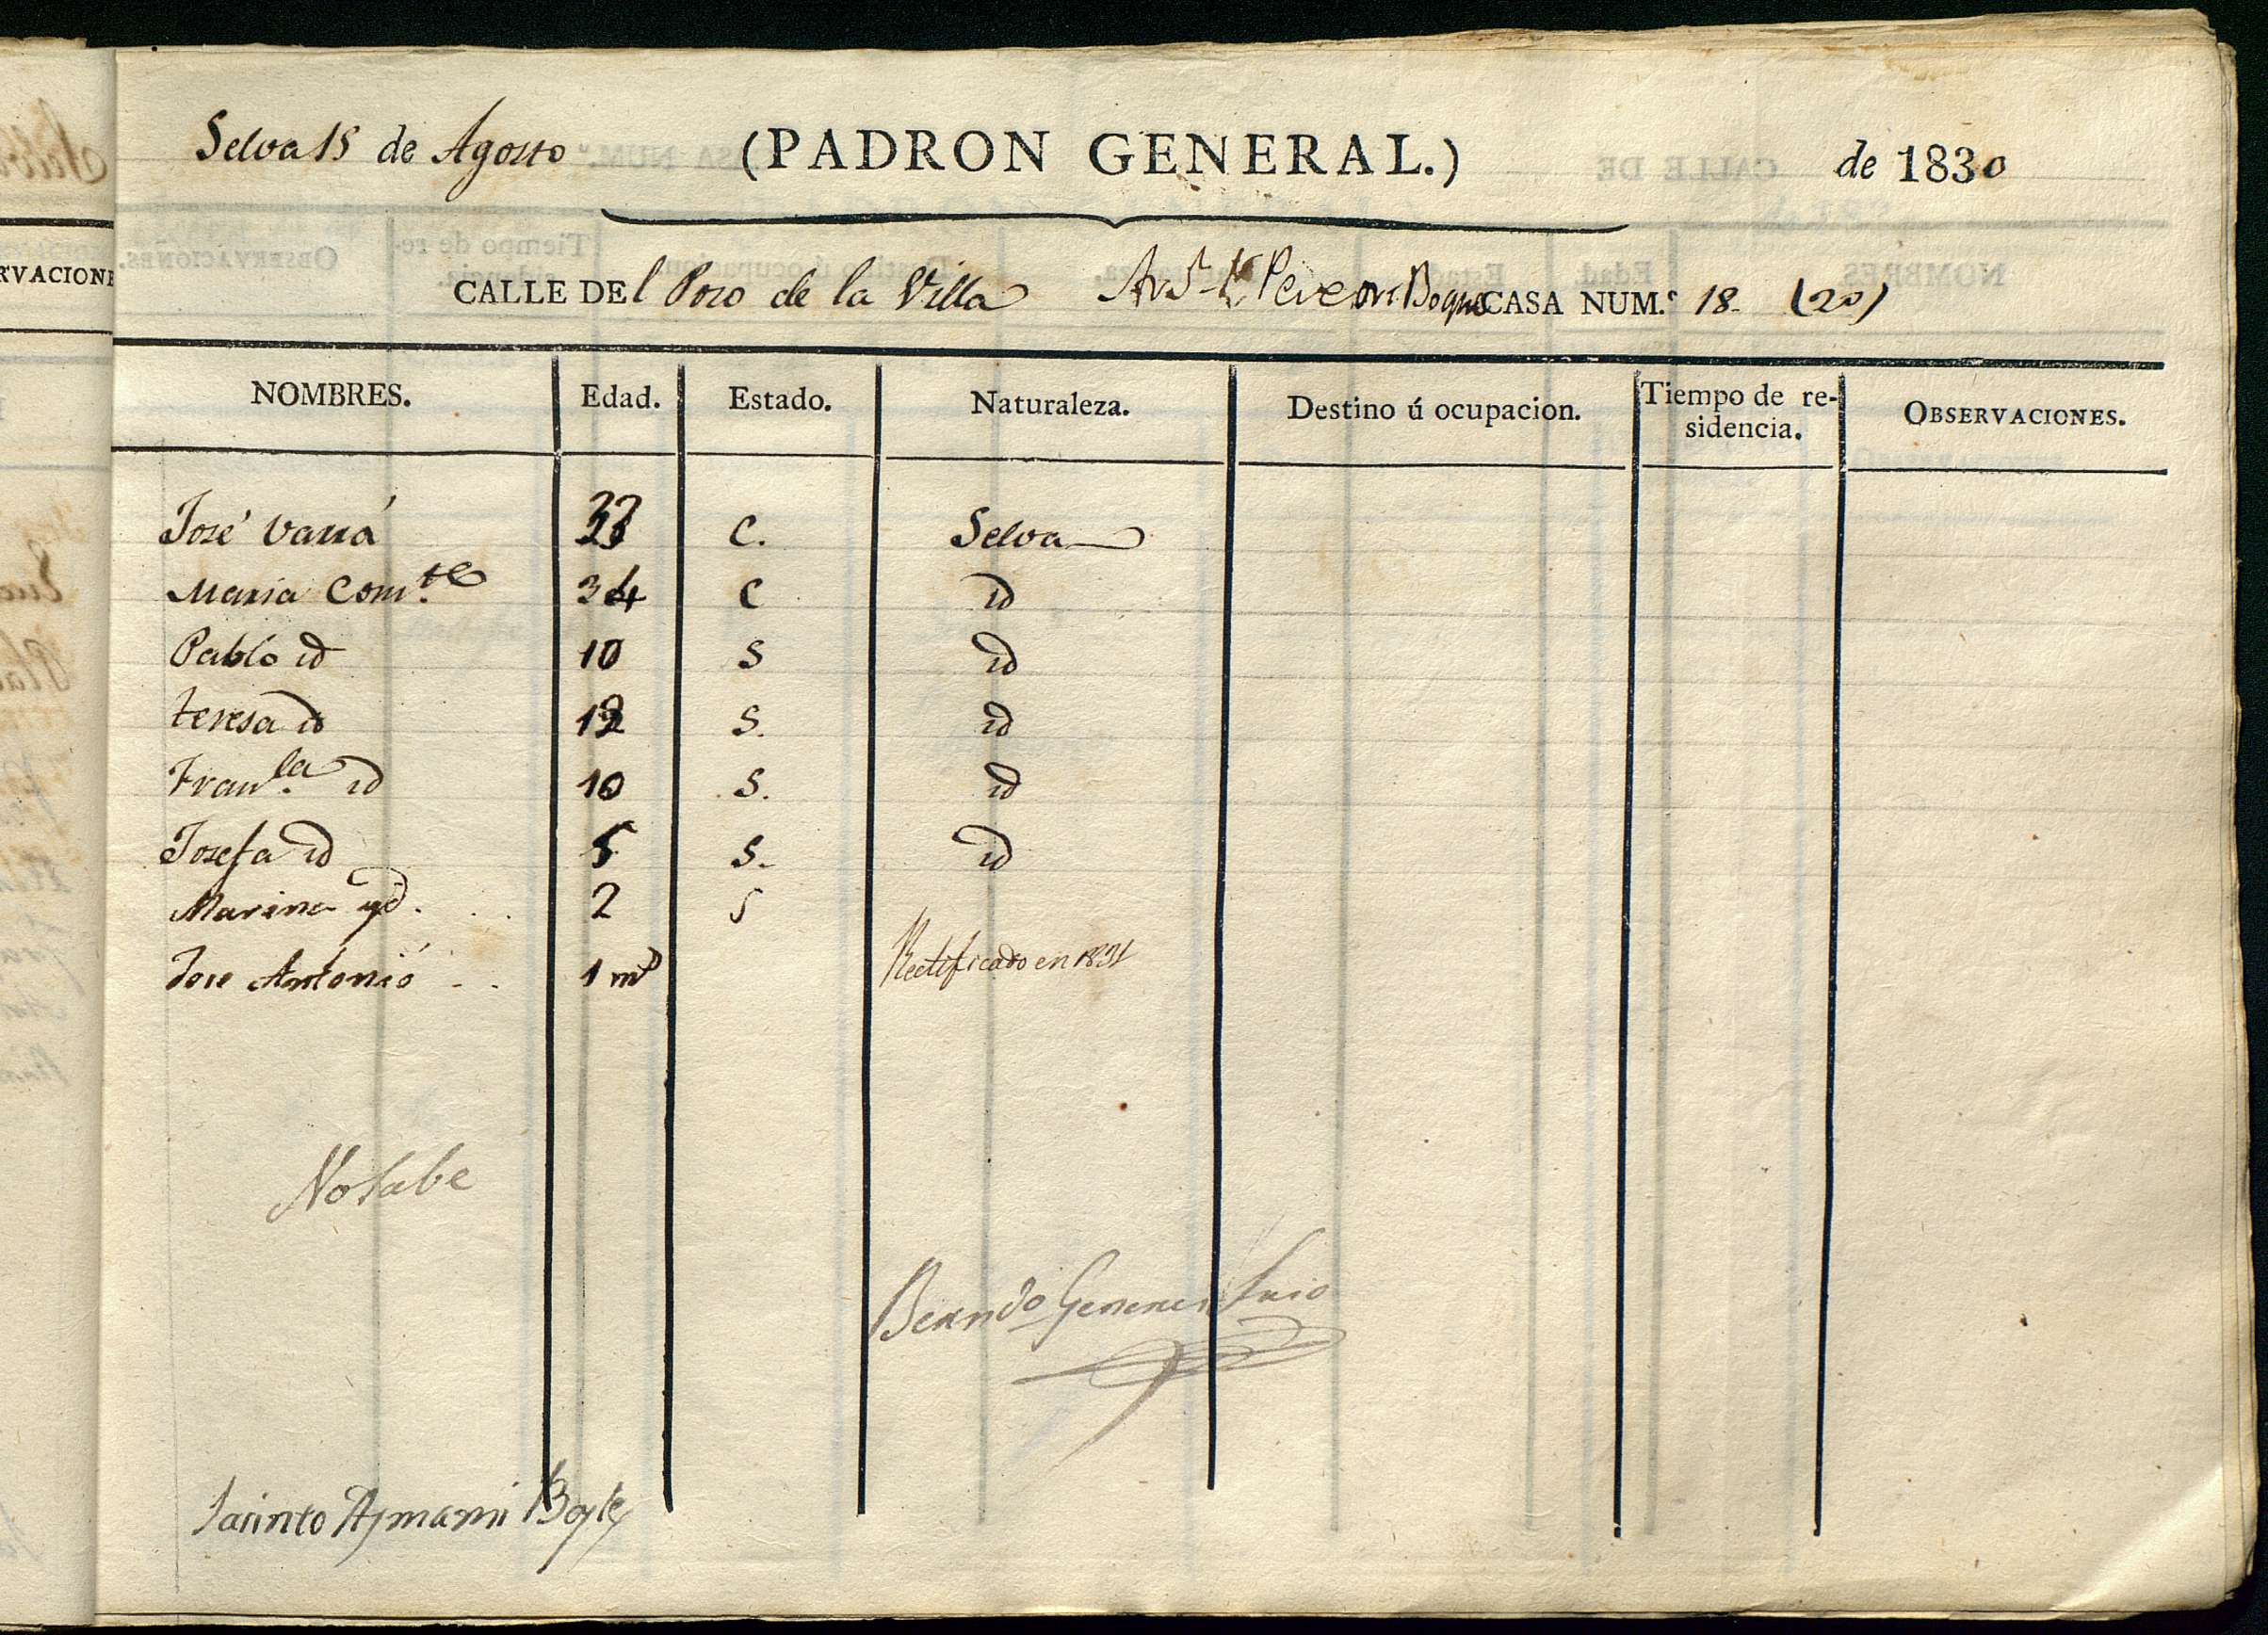 Selva 15 de Agosto (PADRON GENERAL.) de 1830
CALLE DEl Pozo de la Villa CASA NUM.º 18. (20)
NOMBRES. Edad. Estado. Naturaleza. Destino ú ocupacion. Tiempo de re-sidencia. OBSERVACIONES.
José C. Selva
Maria Com.te 34 C id
Pablo id 10 S id
teresa id 12 S. id
Fran.ca id 10 S. id
Josefa id 5 S. id
Marina yd. . . 2 S
Jose Antonio . . 1 m.s
Rectificado en 1831
No sabe
Jacinto Aymami Bayle